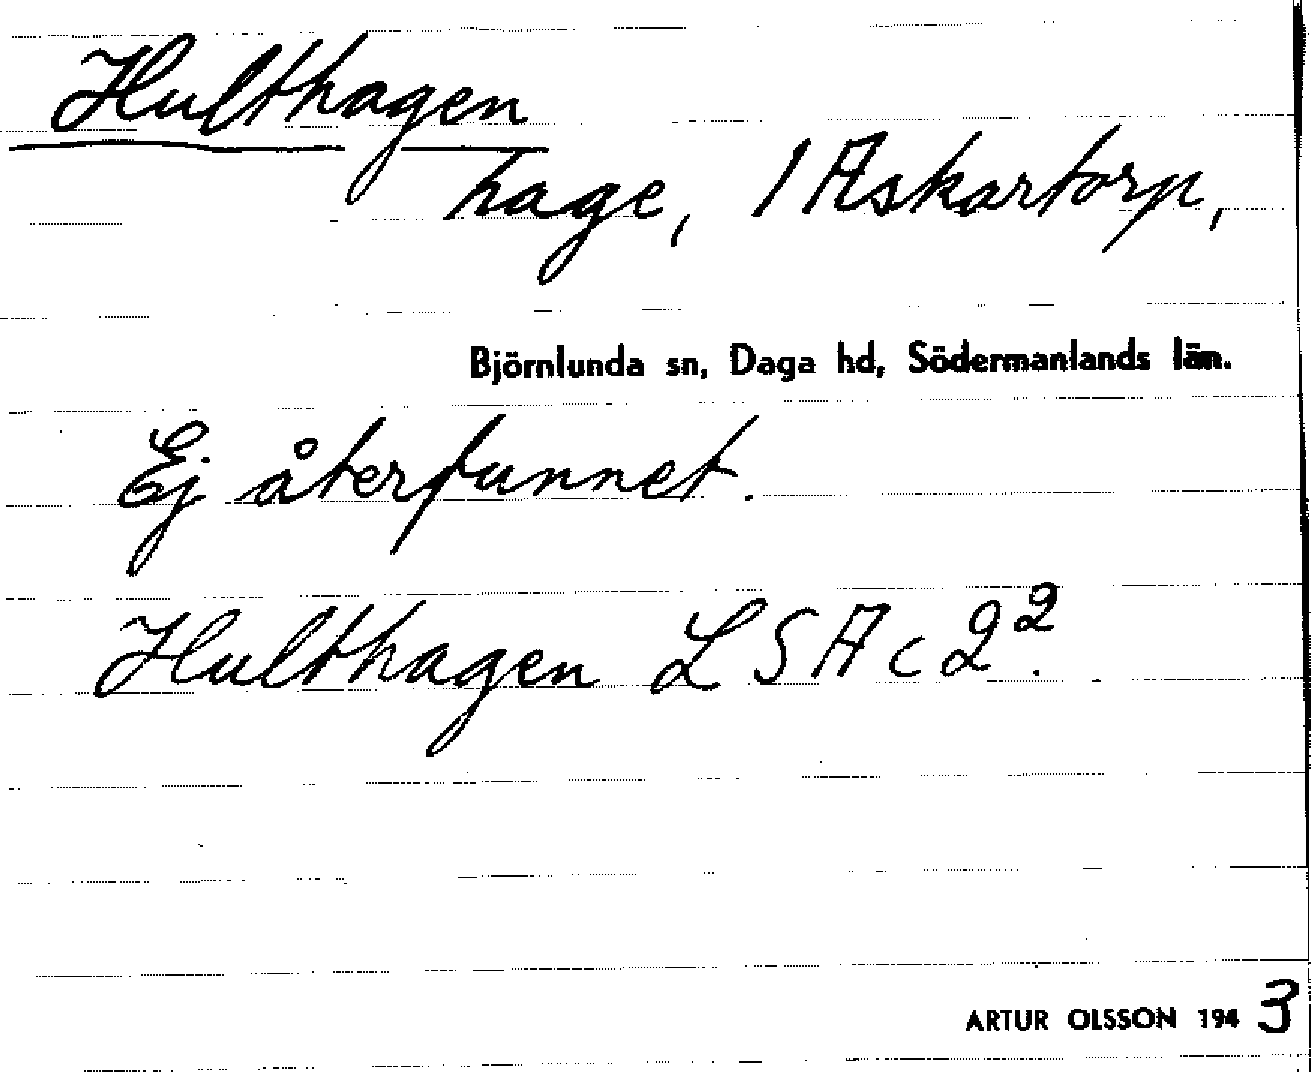 Hulthagen
hage, 1 Askartorp,
Björnlunda sn, Daga hd, Södermanlands län.
Ej återfunnet.
Hulthagen LSA c 2².
ARTUR OLSSON 1943